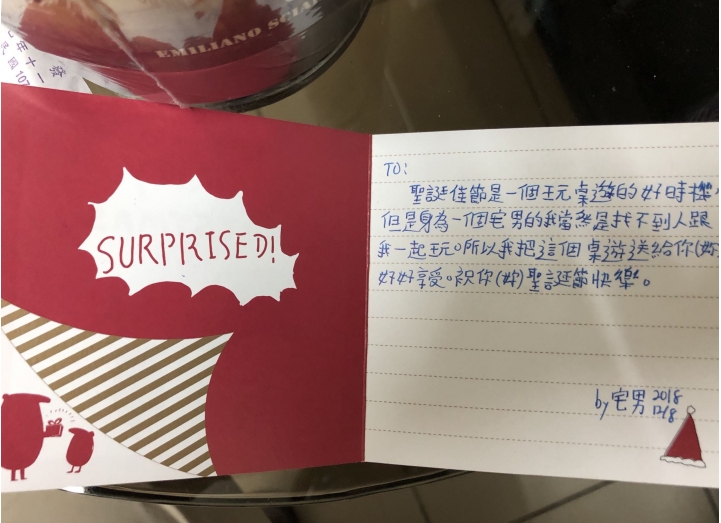 EMILIANO SCIA
發
十一
國107
SURPRISED!
TO:
聖誕佳節是一個玩桌遊的好時機,
但是身為一個宅男的我當然是找不到人跟
我一起玩。所以我把這個桌遊送給你(妳)
好好享受。祝你(妳)聖誕節快樂。
by宅男 2018
12/8